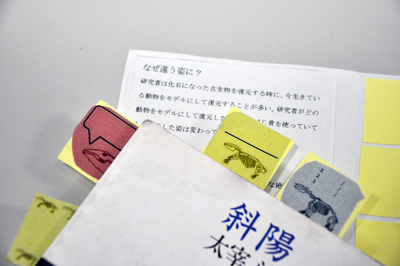 なぜ違う姿に？
研究者は化石になった古生物を復元する時に、今生きてい
る動物をモデルにして復元することが多い。研究者がどの
動物をモデルにして復元した
に骨を使っていて
した姿は変わって
斜陽
太宰